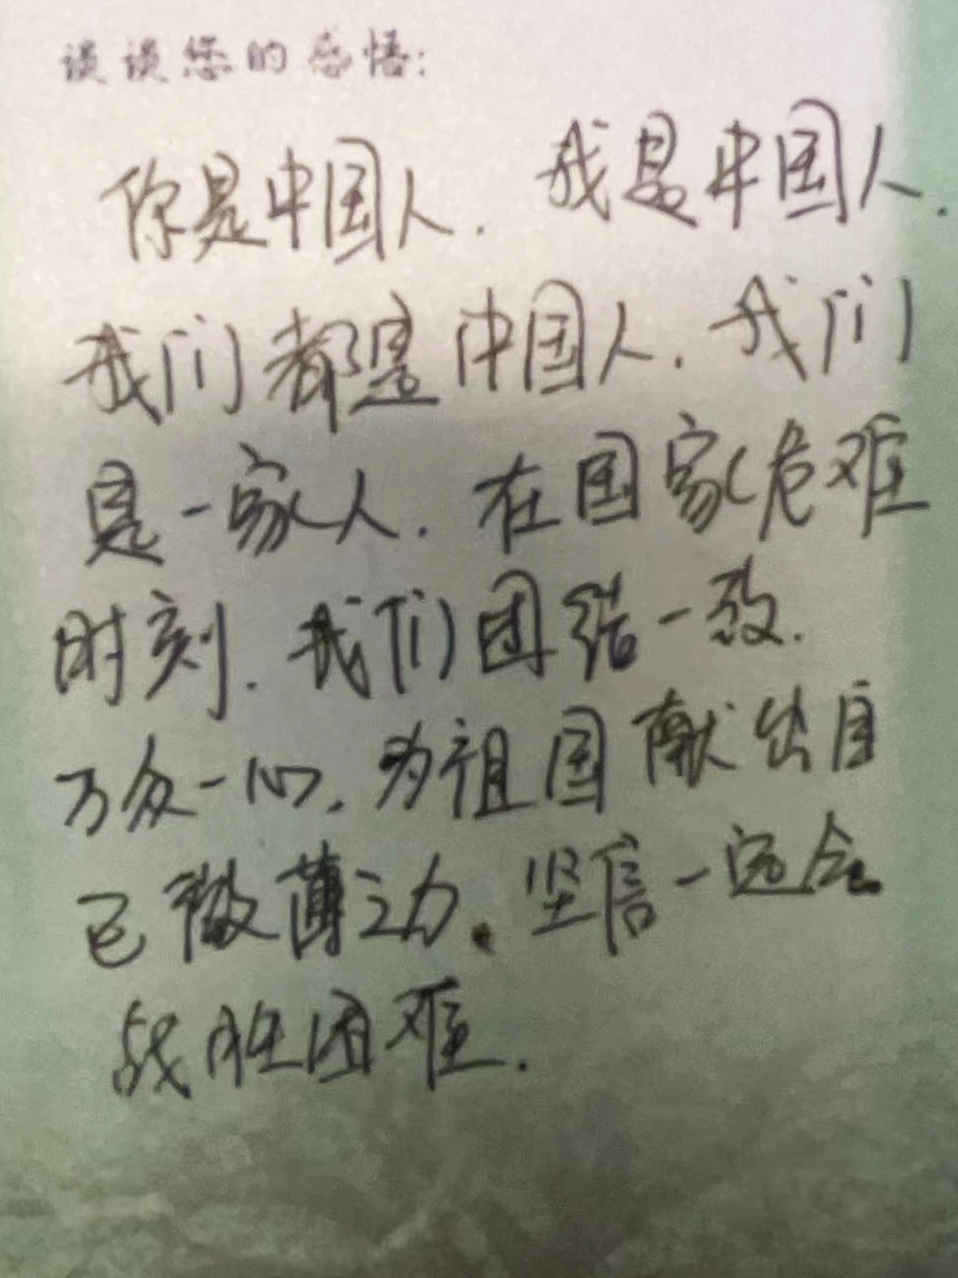 谈谈您的感悟:
你是中国人.我是中国人.
我们都是中国人.我们
是一家人.在国家危难
时刻.我们团结一致.
万众一心.为祖国献出自
己微薄之力.坚信一定会
战胜困难.